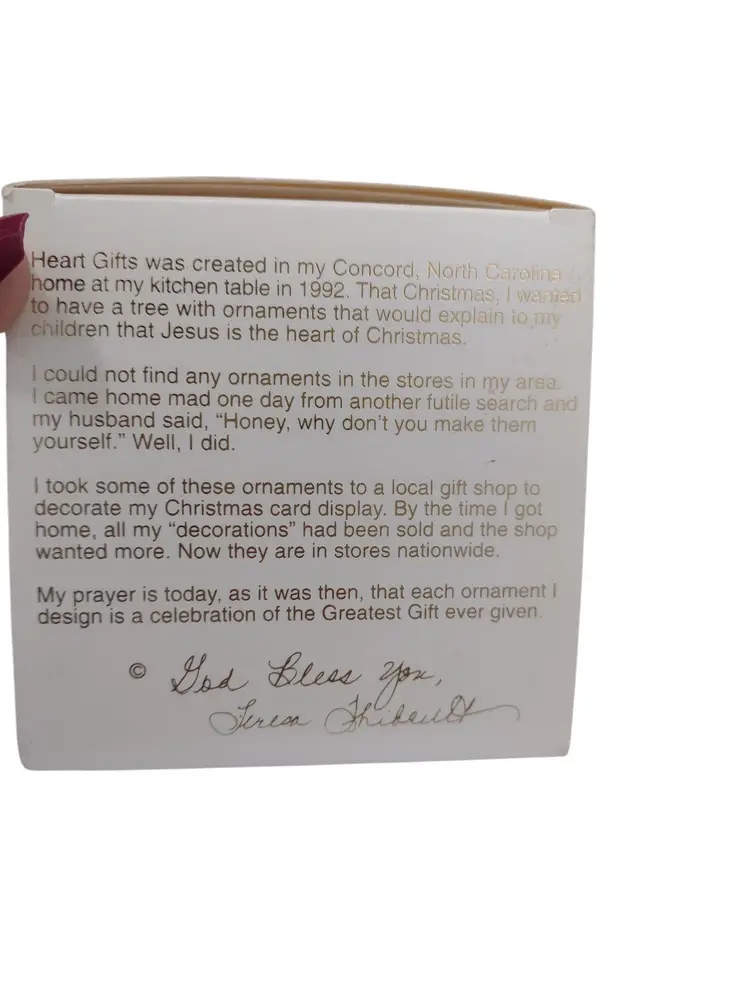 Heart Gifts was created in my Concord, North Carolina
home at my kitchen table in 1992. That Christmas, I wanted
to have a tree with ornaments that would explain to my
children that Jesus is the heart of Christmas.
I could not find any ornaments in the stores in my area.
I came home mad one day from another futile search and
my husband said, “Honey, why don’t you make them
yourself.” Well, I did.
I took some of these ornaments to a local gift shop to
decorate my Christmas card display. By the time I got
home, all my “decorations” had been sold and the shop
wanted more. Now they are in stores nationwide.
My prayer is today, as it was then, that each ornament I
design is a celebration of the Greatest Gift ever given.
© God Bless You,
Teresa Thibault